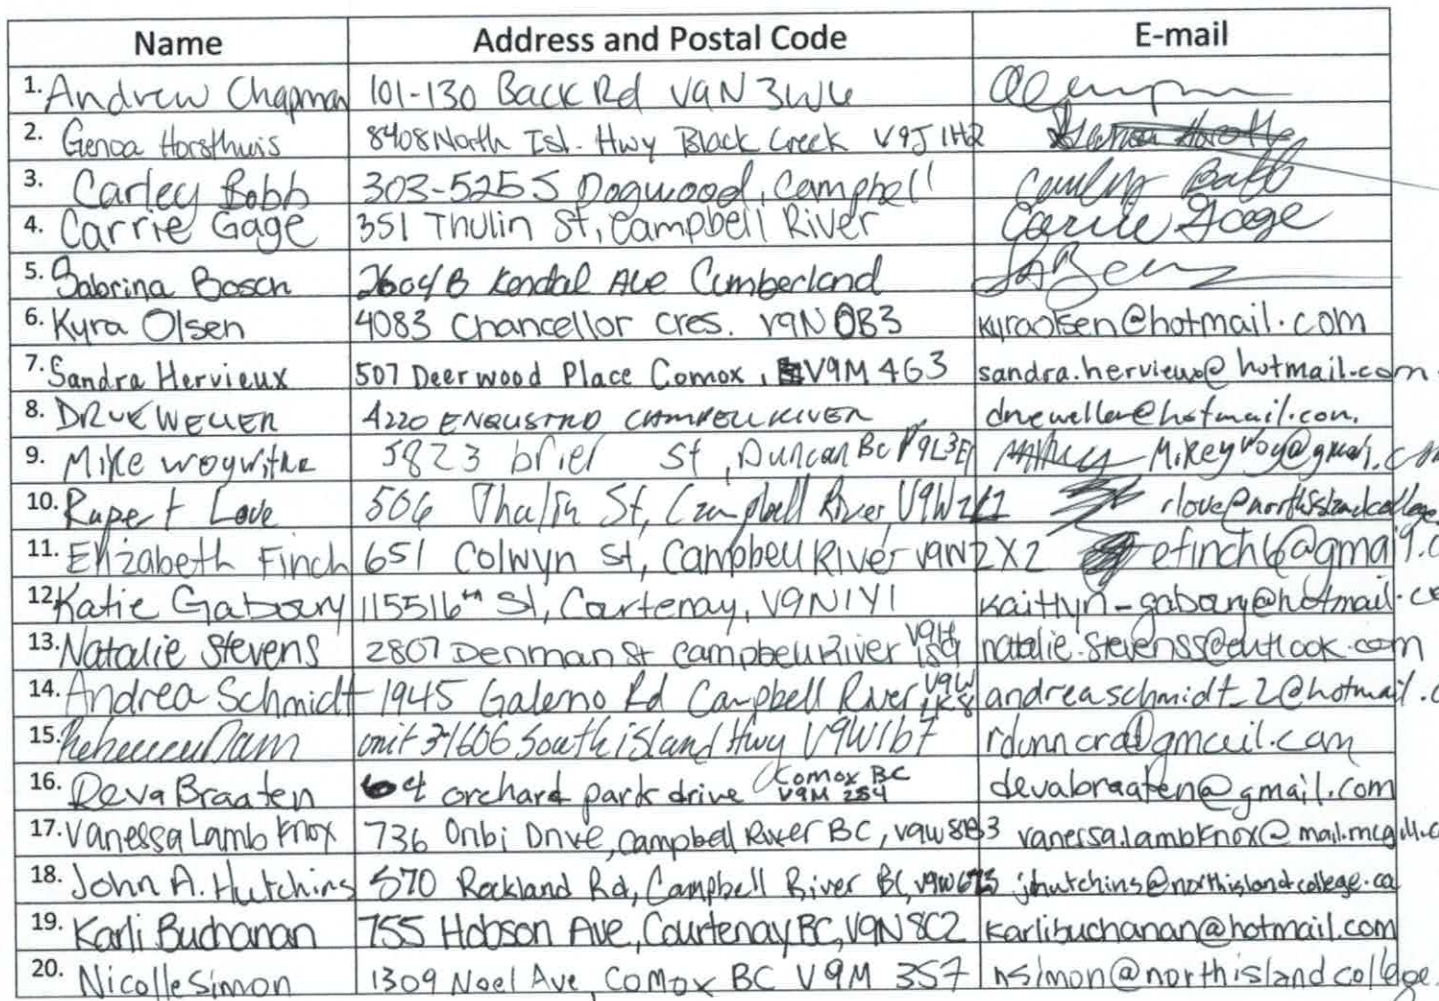 Name Address and Postal Code E-mail
1. Andrew Chapman 101-130 Back Rd V9N 3W6
2. Genoa Horsthuis 8408 North Isl. Hwy Black Creek V9J 1H2
3. Carley Bobb 303-525 S Dogwood, Campbell Carley Bobb
4. Carrie Gage 351 Thulin St, Campbell River Carrie Gage
5. Sabrina Bosch 2604B Kendal Ave Cumberland
6. Kyra Olsen 4083 Chancellor Cres. V9N 0B3 kyraolsen@hotmail.com
7. Sandra Hervieux 507 Deerwood Place Comox, V9M 4G3 sandra.hervieux@hotmail.com
8. DRUE WELLER 4220 CAMPBELL RIVER drueweller@hotmail.com
9. Mike 5823 brier St, Duncan BC V9L3E1 Mikeywoy@gmail.com
10. Rupert Love 506 Thulin St, Campbell River, V9W rlove@northislandcollege.
11. Elizabeth Finch 651 Colwyn St, Campbell River V9W2X2 efinch6@gmail.c
12. Katie Gaboury 1155 16th St, Courtenay, V9N1Y1 kaitlyn-gaboury@hotmail.co
13. Natalie Stevens 2807 Denman St Campbell River V9H 1S9 natalie.stevenss@outlook.com
14. Andrea Schmidt 1945 Galerno Rd Campbell River, V9W 1K8 andreaschmidt_2@hotmail.c
15. Rebecca Dunn unit 3-1606 South island Hwy V9W1b7 rdunncra@gmail.com
16. Deva Braaten orchard park drive Comox BC V9M 2S4 devabraaten@gmail.com
17. Vanessa Lamb Knox 736 Onbi Drive, Campbell River BC, V9W 8B3 vanessa.lambknox@mail.mcgill.c
18. John A. Hutchins 570 Rockland Rd, Campbell River BC, jhutchins@northislandcollege.ca
19. Karli Buchanan 755 Hobson Ave, Courtenay BC, V9N 8C2 karlibuchanan@hotmail.com
20. Nicolle Simon 1309 Noel Ave, Comox BC V9M 3S7 nsimon@northislandcollege.